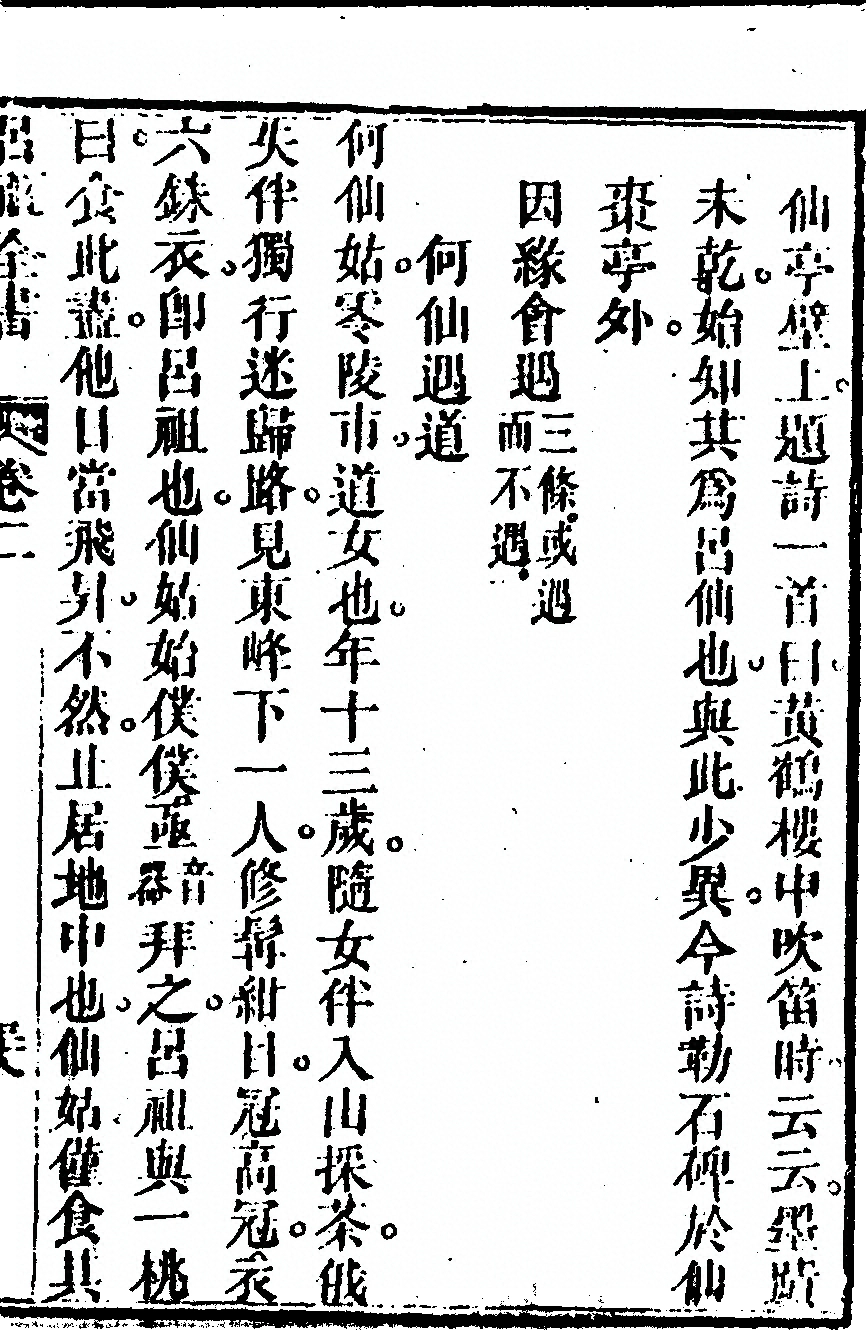 仙亭壁上題詩一首曰黃鶴樓中吹笛時云云墨跡
未乾始知其爲呂仙也與此少異今詩勒石碑於仙
棗亭外
因緣會遇三條或遇而不遇
何仙遇道
何仙姑零陵市道女也年十三歲隨女伴入山採茶俄
失伴獨行迷歸路見東峰下一人修髯紺目冠高冠衣
六銖衣即呂祖也仙姑始僕僕亟音器拜之呂祖與一桃
曰食此盡他日當飛昇不然止居地中也仙姑僅食其
呂祖全書 卷二